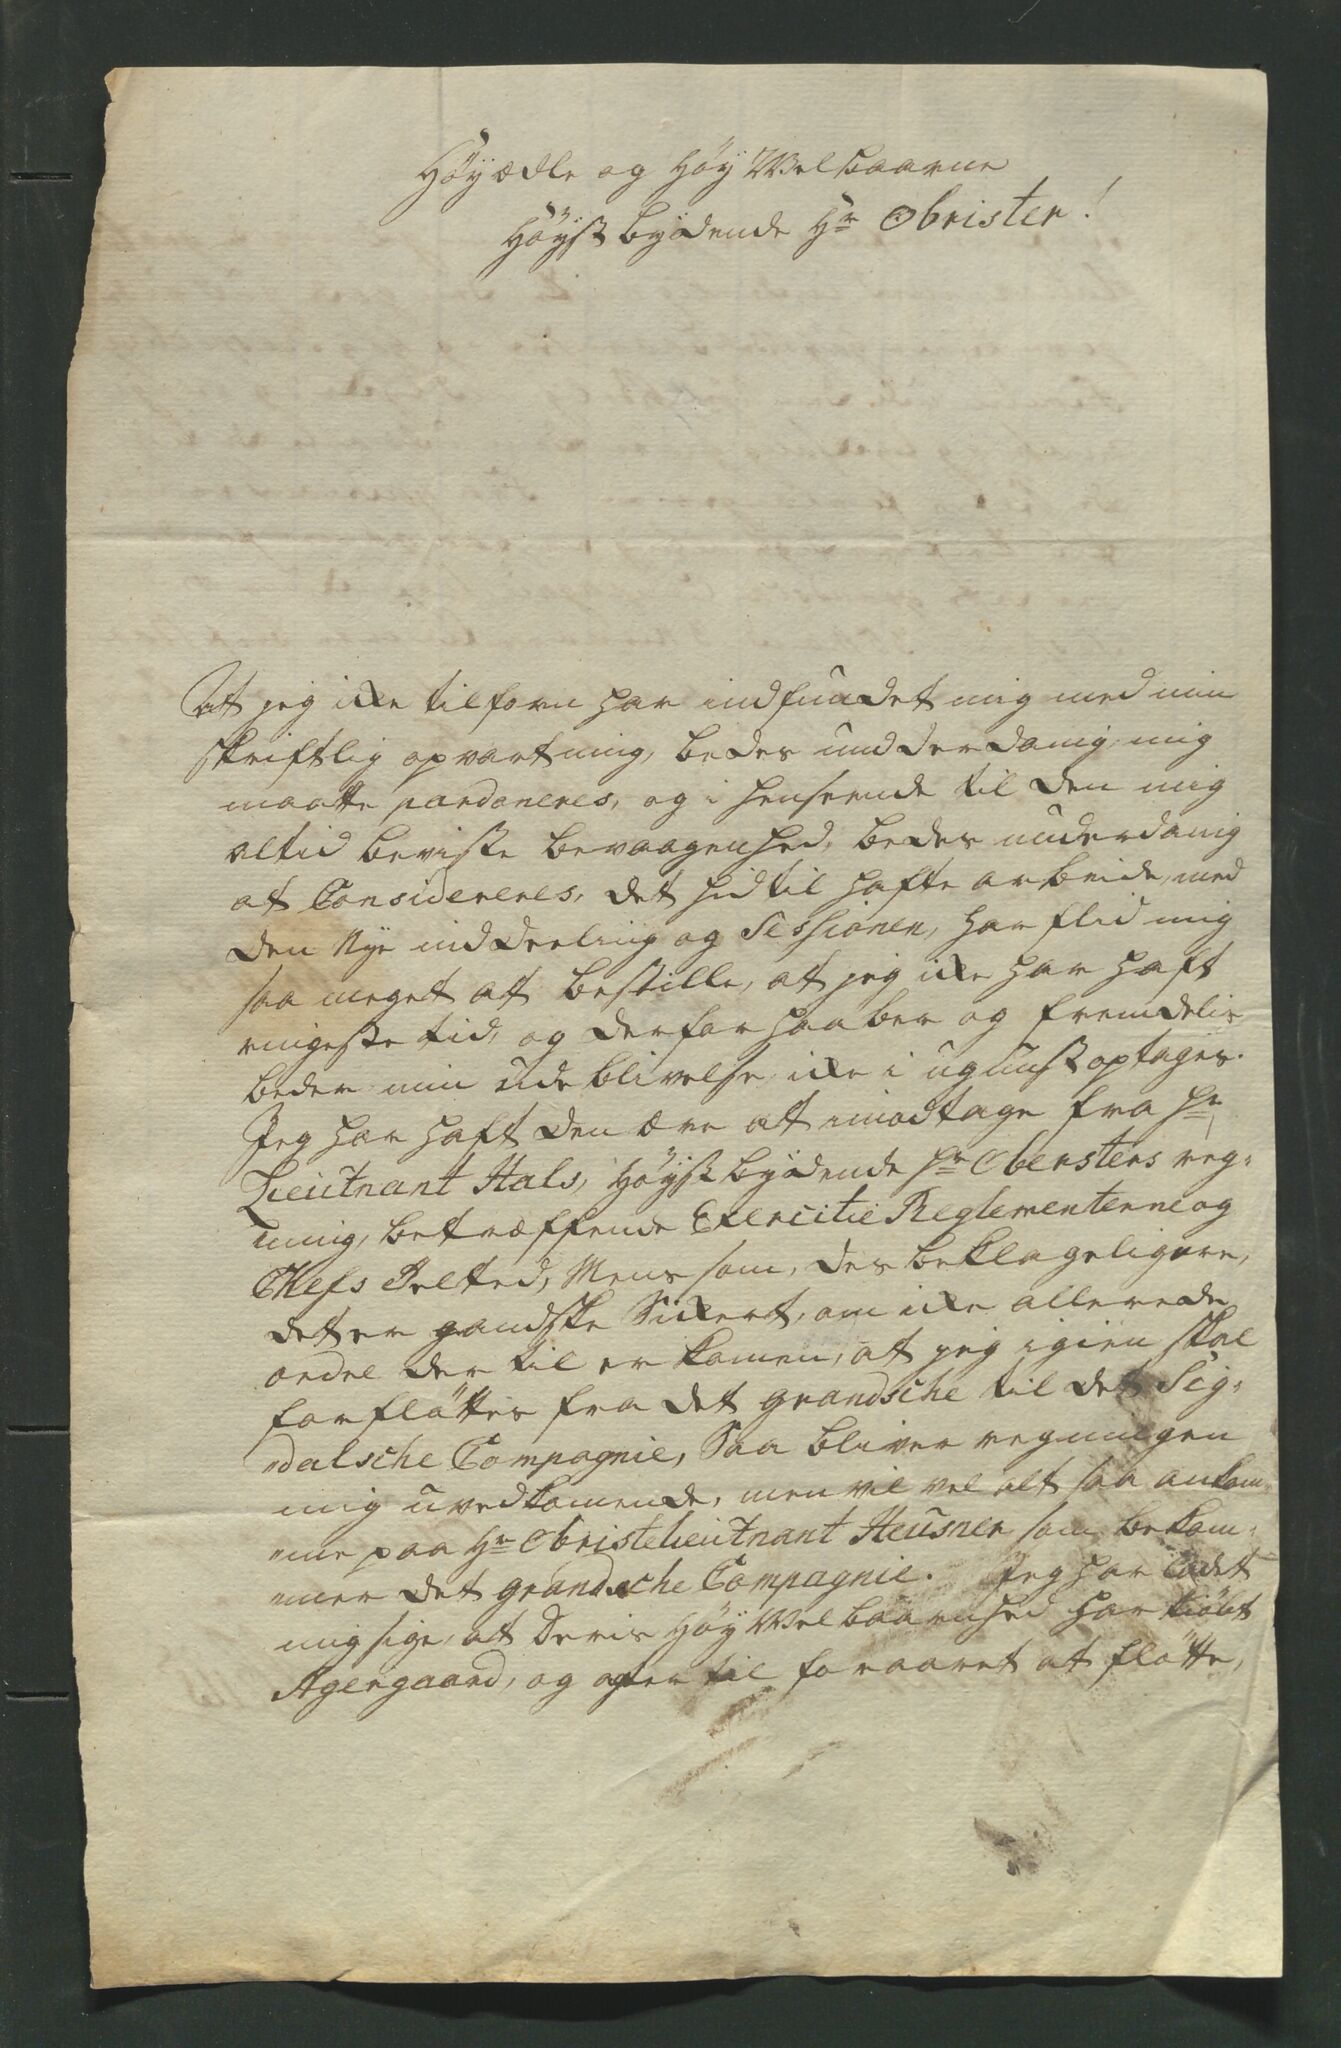 Höyædle og Höy Welbaarne
Höystbydende Hr Obrister!
At jeg ikke tilforn har indfundet mig med min
skriftlig opvartning, bedes undderdanig mig
maatte pardoneres, og i henseende til den mig
altid beviste bevaagenhed, bedes underdanig
at Considereres, det hidtil hafte arbeide, med
den Nye inddeeling og Sessionen, har flid mig
saa meget at bestille, at jeg ikke har haft
ringeste tid, og derfor haaber og fremdelis
beder min udeblivelse ikke i ugunst optages.
Jeg har haft den ære at imodtage fra Hr
Lieutnant Hals, Höystbydende Hr Obersters reg:
ning, betræffende Exercitie Reglementerne og
Chefs Telted, Mens som, des beklageligere,
det er gandske Sikkert, om ikke allerede
ordre der til er komen, at jeg igien skal
forflöttes fra det grandsche til det Sig:
dalsche Compagnie, Saa bliver regningen
mig uvedkomende, men vil vel alt saa ankom:
me paa Hr Obristelieutnant Heusner som bekom:
mer det grandsche Compagnie. Jeg har ladet
mig sige, at Deris Höy Welbaarenhed har kiöbt
Agergaard, og agter til foraaret at flötte,